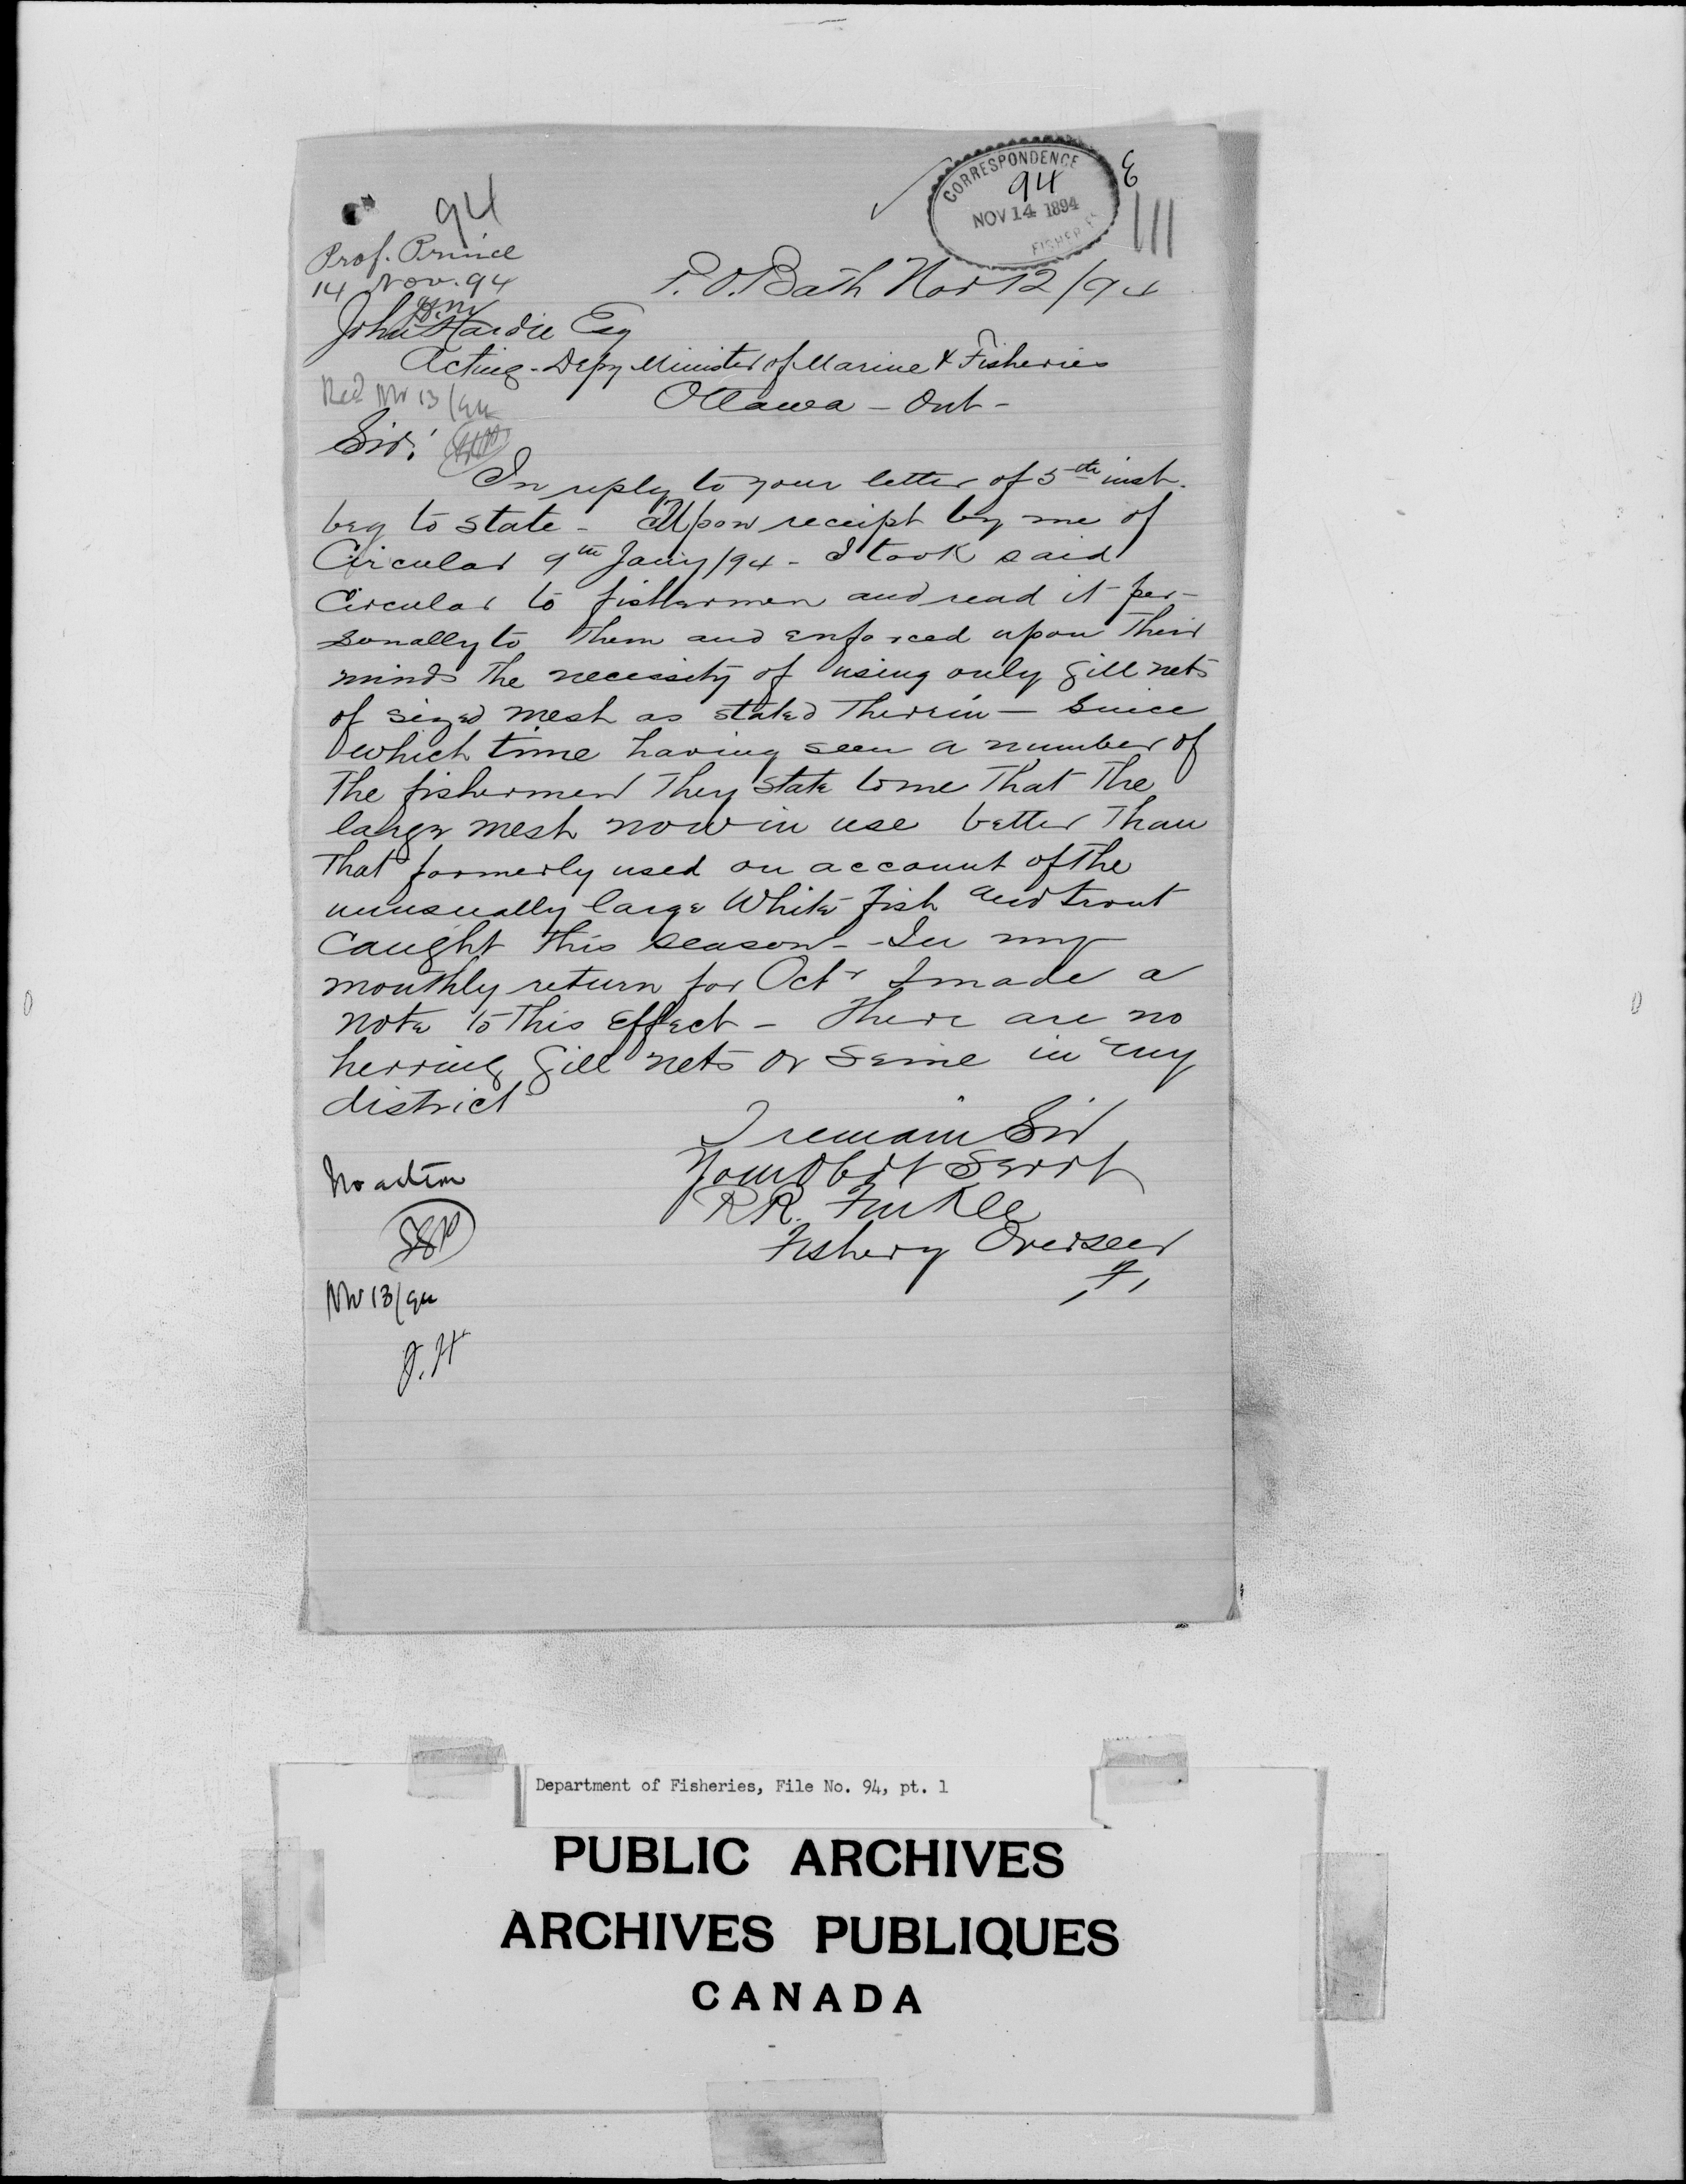 CORRESPONDENCE
94
NOV 14 1894
94
Prof. Prince
14 Nov. 94
P.O. Bath Nov 12/94
John Hardie Esq
Acting - Depy Minister of Marine & Fisheries
Recd Nov 13/94
Ottawa - Ont -
Sir;
In reply to your letter of 5th inst.
beg to state - Upon receipt by me of
Circular 9th Jany/94 - I took said
Circular to fishermen and read it per-
sonally to them and enforced upon their
minds the necessity of using only gill nets
of sized mesh as stated therein - Since
which time having seen a number of
the fishermen they state to me that the
large mesh now in use better than
that formerly used on account of the
unusually large White fish and trout
caught this season - In my
monthly return for Octr I made a
note to this effect - There are no
herring gill nets or seine in my
district
I remain Sir
Your Obdt Servt
R R. Finkle
Fishery Overseer
No action
Nov 13/94
J. H
Department of Fisheries, File No. 94, pt. 1
PUBLIC ARCHIVES
ARCHIVES PUBLIQUES
CANADA